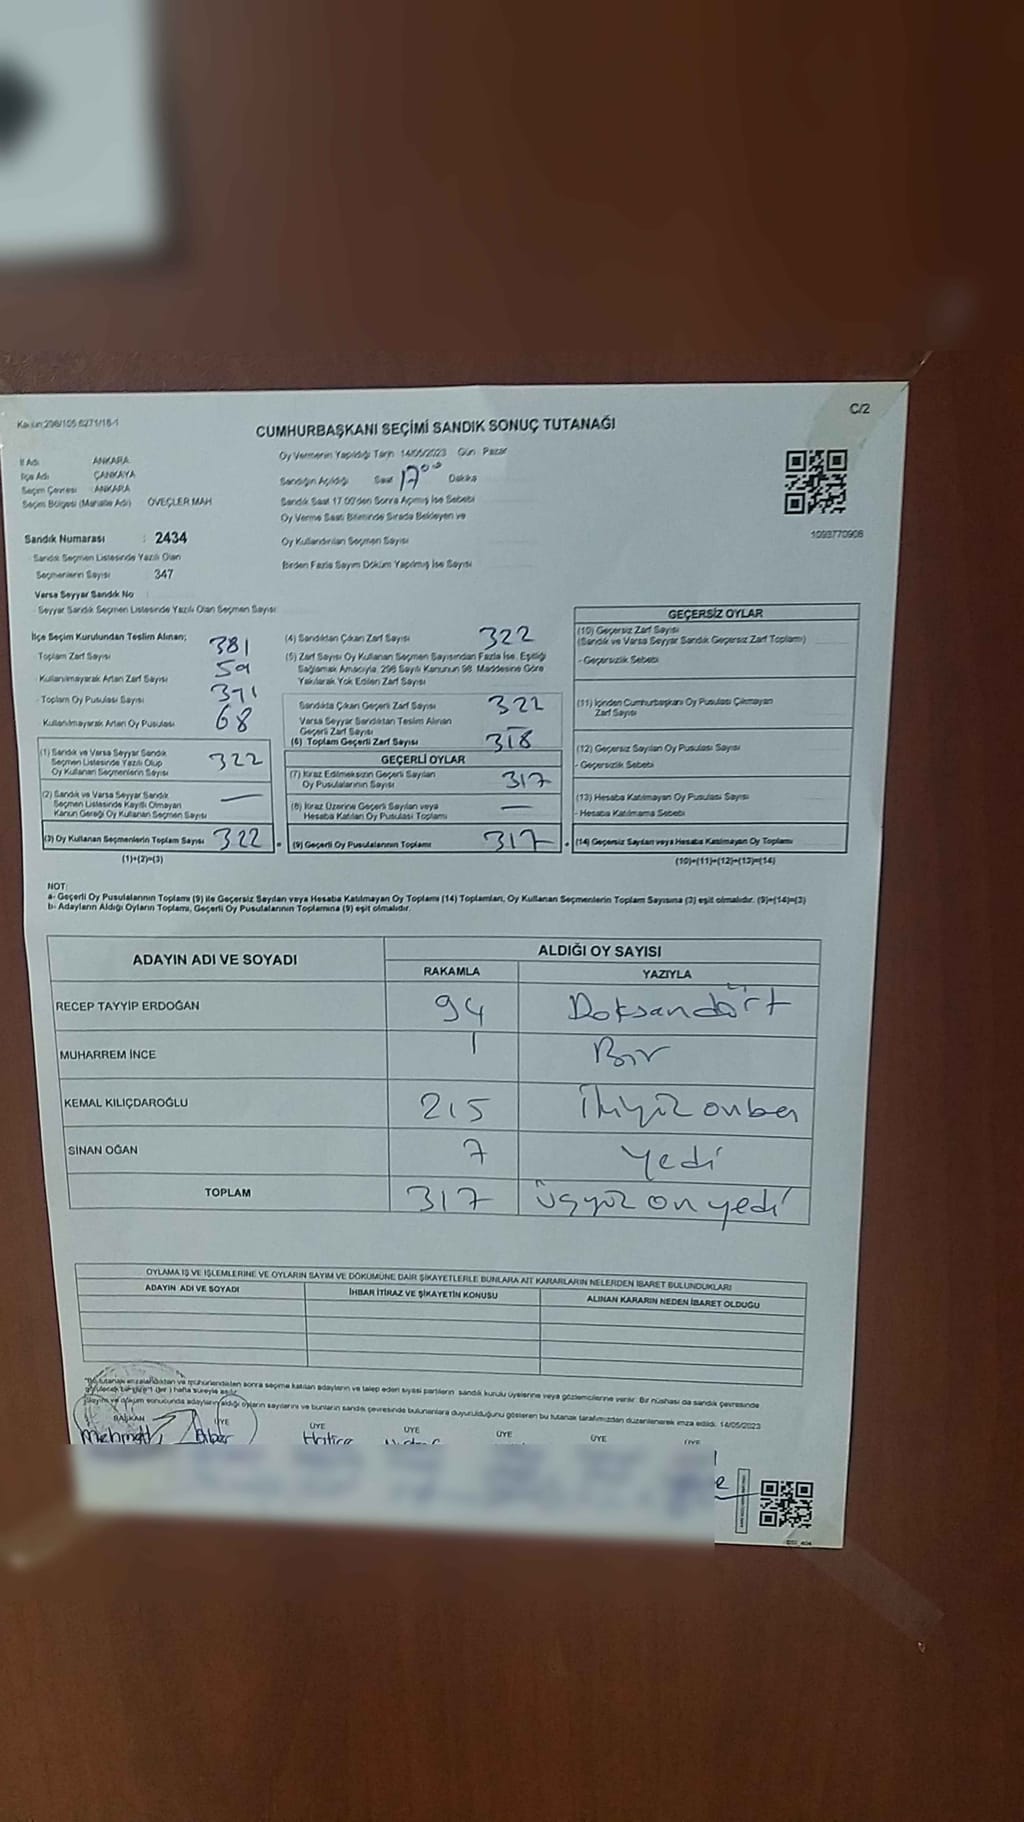 C/2
Kanun:298/105 6271/16-1
CUMHURBAŞKANI SEÇİMİ SANDIK SONUÇ TUTANAĞI
İl Adı ANKARA
İlçe Adı ÇANKAYA
Seçim Çevresi : ANKARA
Seçim Bölgesi (Mahalle Adı) ÖVEÇLER MAH
Oy Vermenin Yapıldığı Tarih 14/05/2023 Gün Pazar
Sandığın Açıldığı Saat 17⁰⁰ Dakika
Sandık Saat 17.00'den Sonra Açılmış İse Sebebi
Oy Verme Saati Bitiminde Sırada Bekleyen ve
Oy Kullandırılan Seçmen Sayısı
Birden Fazla Sayım Döküm Yapılmış İse Sayısı
1093770908
Sandık Numarası : 2434
Sandık Seçmen Listesinde Yazılı Olan
Seçmenlerin Sayısı 347
Varsa Seyyar Sandık No
Seyyar Sandık Seçmen Listesinde Yazılı Olan Seçmen Sayısı
İlçe Seçim Kurulundan Teslim Alınan;
- Toplam Zarf Sayısı 381
- Kullanılmayarak Artan Zarf Sayısı 59
- Toplam Oy Pusulası Sayısı
Kullanılmayarak Artan Oy Pusulası 68
(1) Sandık ve Varsa Seyyar Sandık
Seçmen Listesinde Yazılı Olup
Oy Kullanan Seçmenlerin Sayısı 322
(2) Sandık ve Varsa Seyyar Sandık
Seçmen Listesinde Kayıtlı Olmayan
Kanun Gereği Oy Kullanan Seçmen Sayısı —
(3) Oy Kullanan Seçmenlerin Toplam Sayısı 322
(1)+(2)=(3)
(4) Sandıktan Çıkan Zarf Sayısı 322
(5) Zarf Sayısı Oy Kullanan Seçmen Sayısından Fazla İse, Eşitliği
Sağlamak Amacıyla, 298 Sayılı Kanunun 98. Maddesine Göre
Yakılarak Yok Edilen Zarf Sayısı
Sandıkta Çıkan Geçerli Zarf Sayısı 322
Varsa Seyyar Sandıktan Teslim Alınan
Geçerli Zarf Sayısı —
(6) Toplam Geçerli Zarf Sayısı 318
GEÇERLİ OYLAR
(7) İtiraz Edilmeksizin Geçerli Sayılan
Oy Pusulalarının Sayısı 317
(8) İtiraz Üzerine Geçerli Sayılan veya
Hesaba Katılan Oy Pusulası Toplamı —
(9) Geçerli Oy Pusulalarının Toplamı 317
GEÇERSİZ OYLAR
(10) Geçersiz Zarf Sayısı
(Sandık ve Varsa Seyyar Sandık Geçersiz Zarf Toplamı)
- Geçersizlik Sebebi
(11) İçinden Cumhurbaşkanı Oy Pusulası Çıkmayan
Zarf Sayısı
(12) Geçersiz Sayılan Oy Pusulası Sayısı
- Geçersizlik Sebebi
(13) Hesaba Katılmayan Oy Pusulası Sayısı
- Hesaba Katılmama Sebebi
(14) Geçersiz Sayılan veya Hesaba Katılmayan Oy Toplamı
(10)+(11)+(12)+(13)=(14)
NOT:
a- Geçerli Oy Pusulalarının Toplamı (9) ile Geçersiz Sayılan veya Hesaba Katılmayan Oy Toplamı (14) Toplamları, Oy Kullanan Seçmenlerin Toplam Sayısına (3) eşit olmalıdır. (9)+(14)=(3)
b- Adayların Aldığı Oyların Toplamı, Geçerli Oy Pusulalarının Toplamına (9) eşit olmalıdır.
ADAYIN ADI VE SOYADI ALDIĞI OY SAYISI
RAKAMLA YAZIYLA
RECEP TAYYİP ERDOĞAN 94 Doksandört
MUHARREM İNCE 1 Bir
KEMAL KILIÇDAROĞLU 215 İkiyüz onbeş
SİNAN OĞAN 7 Yedi
TOPLAM 317 üçyüz on yedi
OYLAMA İŞ VE İŞLEMLERİNE VE OYLARIN SAYIM VE DÖKÜMÜNE DAİR ŞİKAYETLERLE BUNLARA AİT KARARLARIN NELERDEN İBARET BULUNDUKLARI
ADAYIN ADI VE SOYADI İHBAR İTİRAZ VE ŞİKAYETİN KONUSU ALINAN KARARIN NEDEN İBARET OLDUĞU
"Bu tutanak imzalandıktan ve mühürlendikten sonra seçime katılan adayların ve talep eden siyasi partilerin sandık kurulu üyelerine veya gözlemcilerine verilir. Bir nüshası da sandık çevresinde
görülecek bir yere 1 (bir) hafta süreyle asılır.
Sayım ve döküm sonucunda adayların aldığı oyların sayılarını ve bunların sandık çevresinde bulunanlara duyurulduğunu gösteren bu tutanak tarafımızdan düzenlenerek imza edildi. 14/05/2023
BAŞKAN ÜYE ÜYE ÜYE ÜYE ÜYE ÜYE
Mehmet Hatice